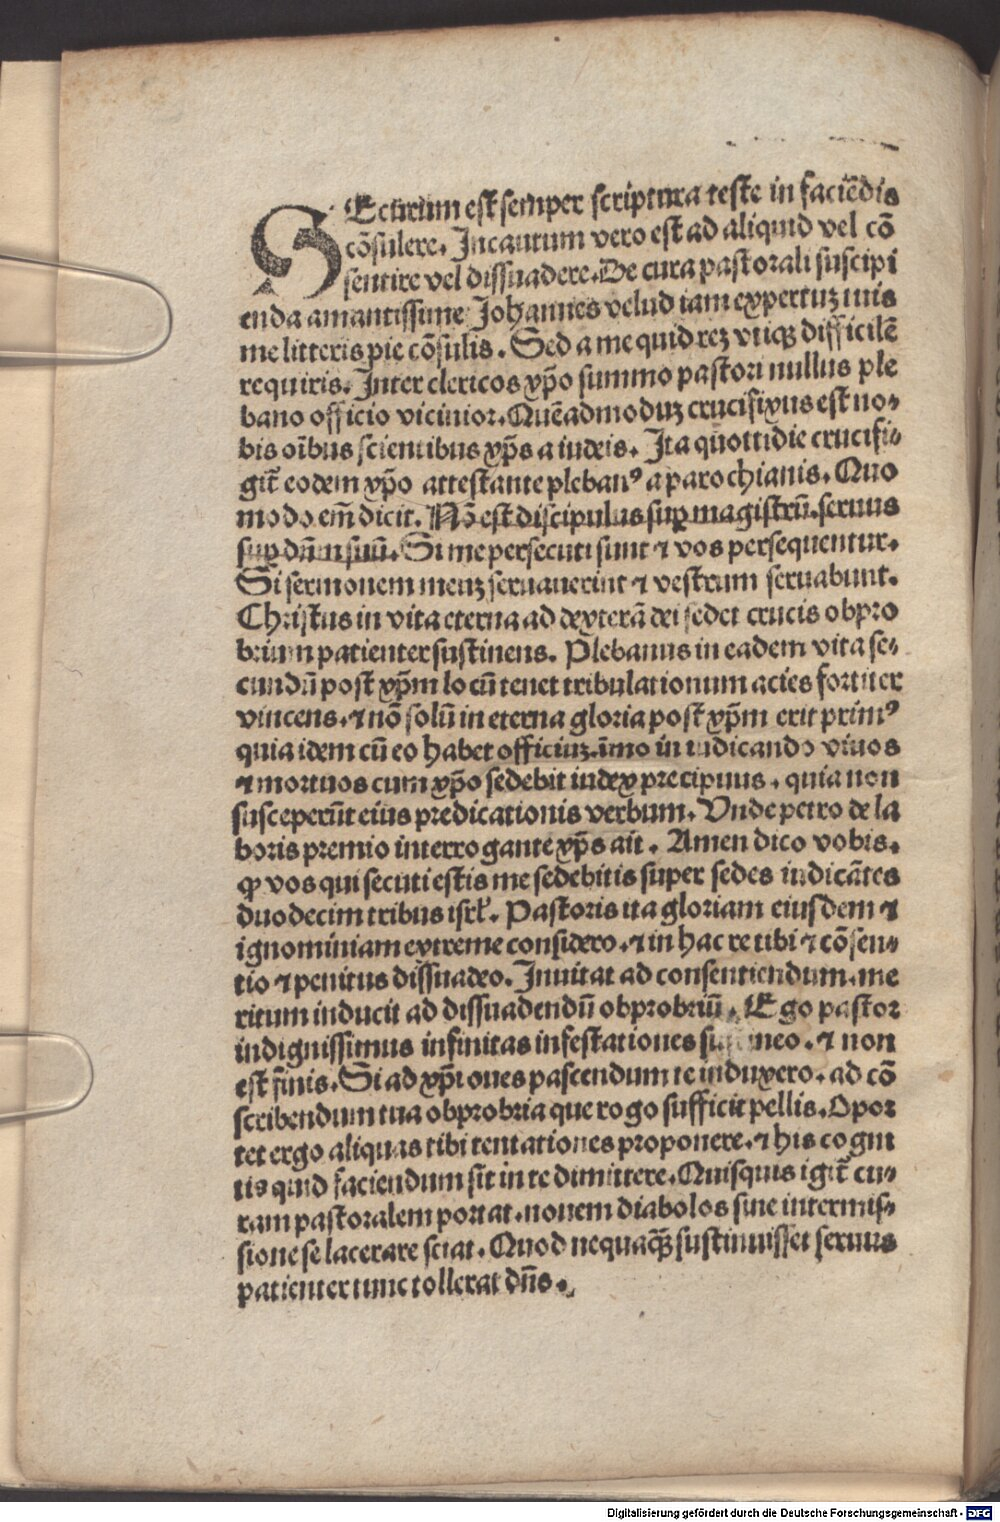 SEcurum est semper scriptura teste in faciēdis
cōsulere. Incautum vero est ad aliquid vel cō
sentire vel dissuadere. De cura pastorali suscipi
enda amantissime Johannes velud iam expertuꝫ tuis
me litteris pie cōsulis. Sed a me quid reꝫ vtiqꝫ difficilē
requiris. Inter clericos xp̄o summo pastori nullus ple
bano officio vicinior. Quēadmoduꝫ crucifixus est no⸗
bis oībus scientibus xp̄s a iudeis. Ita quottidie crucifi⸗
git̄ eodem xp̄o attestante plebanꝰ a parochianis. Quo
modo em̄ dicit. Nō est discipulus suꝑ magistrū. seruus
suꝑ dn̄m suū. Si me persecuti sunt ⁊ vos persequentur.
Si sermonem meuꝫ seruauerint ⁊ vestrum seruabunt.
Christus in vita eterna ad dexterā dei sedet crucis obpro
brium patienter sustinens. Plebanus in eadem vita se⸗
cundū post xp̄m locū tenet tribulationum acies fortiter
vincens. ⁊ nō solū in eterna gloria post xp̄m erit primꝰ
quia idem cū eo habet officiuꝫ. īmo in iudicando viuos
⁊ mortuos cum xp̄o sedebit iudex precipuus. quia non
susceperūt eius predicationis verbum. Vnde petro de la
boris premio interrogante xp̄s ait. Amen dico vobis.
ꝙ vos qui secuti estis me sedebitis super sedes iudicātes
duodecim tribus isrl̄. Pastoris ita gloriam eiusdem ⁊
ignominiam extreme considero. ⁊ in hac re tibi ⁊ cōsen⸗
tio ⁊ penitus dissuadeo. Inuitat ad consentiendum. me
ritum inducit ad dissuadendū obprobriū. Ego pastor
indignissimus infinitas infestationes sustineo. ⁊ non
est finis. Si ad xp̄i oues pascendum te induxero. ad cō
scribendum tua obprobria que rogo sufficit pellis. Opor
tet ergo aliquas tibi tentationes proponere. ⁊ his cogni
tis quid faciendum sit in te dimittere. Quisquis igit̄ cu⸗
ram pastoralem portat. nouem diabolos sine intermis⸗
sione se lacerare sciat. Quod nequaqꝫ sustinuisset seruus
patienter tunc tollerat dn̄s.
Digitalisierung gefördert durch die Deutsche Forschungsgemeinschaft - DFG